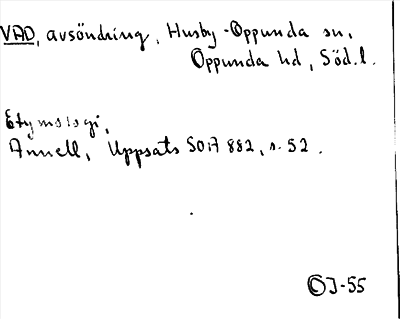 VAD, avsöndring, Husby-Oppunda sn,
Oppunda hd, Söd.l.
Etymologi,
Annell, Uppsats SOA 882, s. 52.
OJ-55